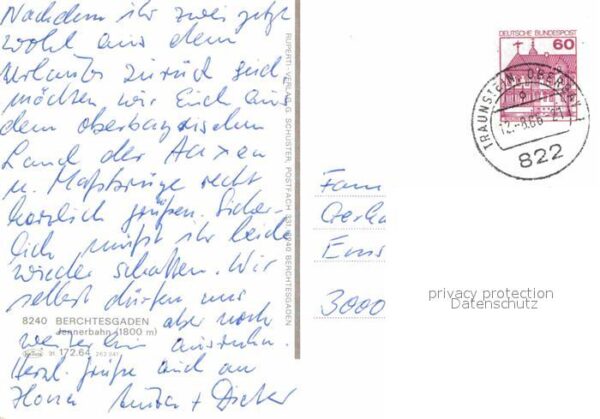 Nachdem ihr zwei jetzt
wohl aus dem
Urlaub zurück seid
möchten wir Euch aus
dem oberbayrischen
Land der Haxen
u. Maßkrüge recht
herzlich grüßen. Sicher-
lich müßt ihr beide
wieder schaffen. Wir
selbst dürfen uns
aber noch
weiterhin ausruhn.
Herzl. Grüße auch an
+ Dieter
8240 BERCHTESGADEN
Jennerbahn (1800 m)
91 172.64
RUPERTI-VERLAG G. SCHUSTER, POSTFACH 331, 8240 BERCHTESGADEN
DEUTSCHE BUNDESPOST
60
TRAUNSTEIN, OBERBAY 1
822
Fam
Gerha
Ems
3000
privacy protection
Datenschutz